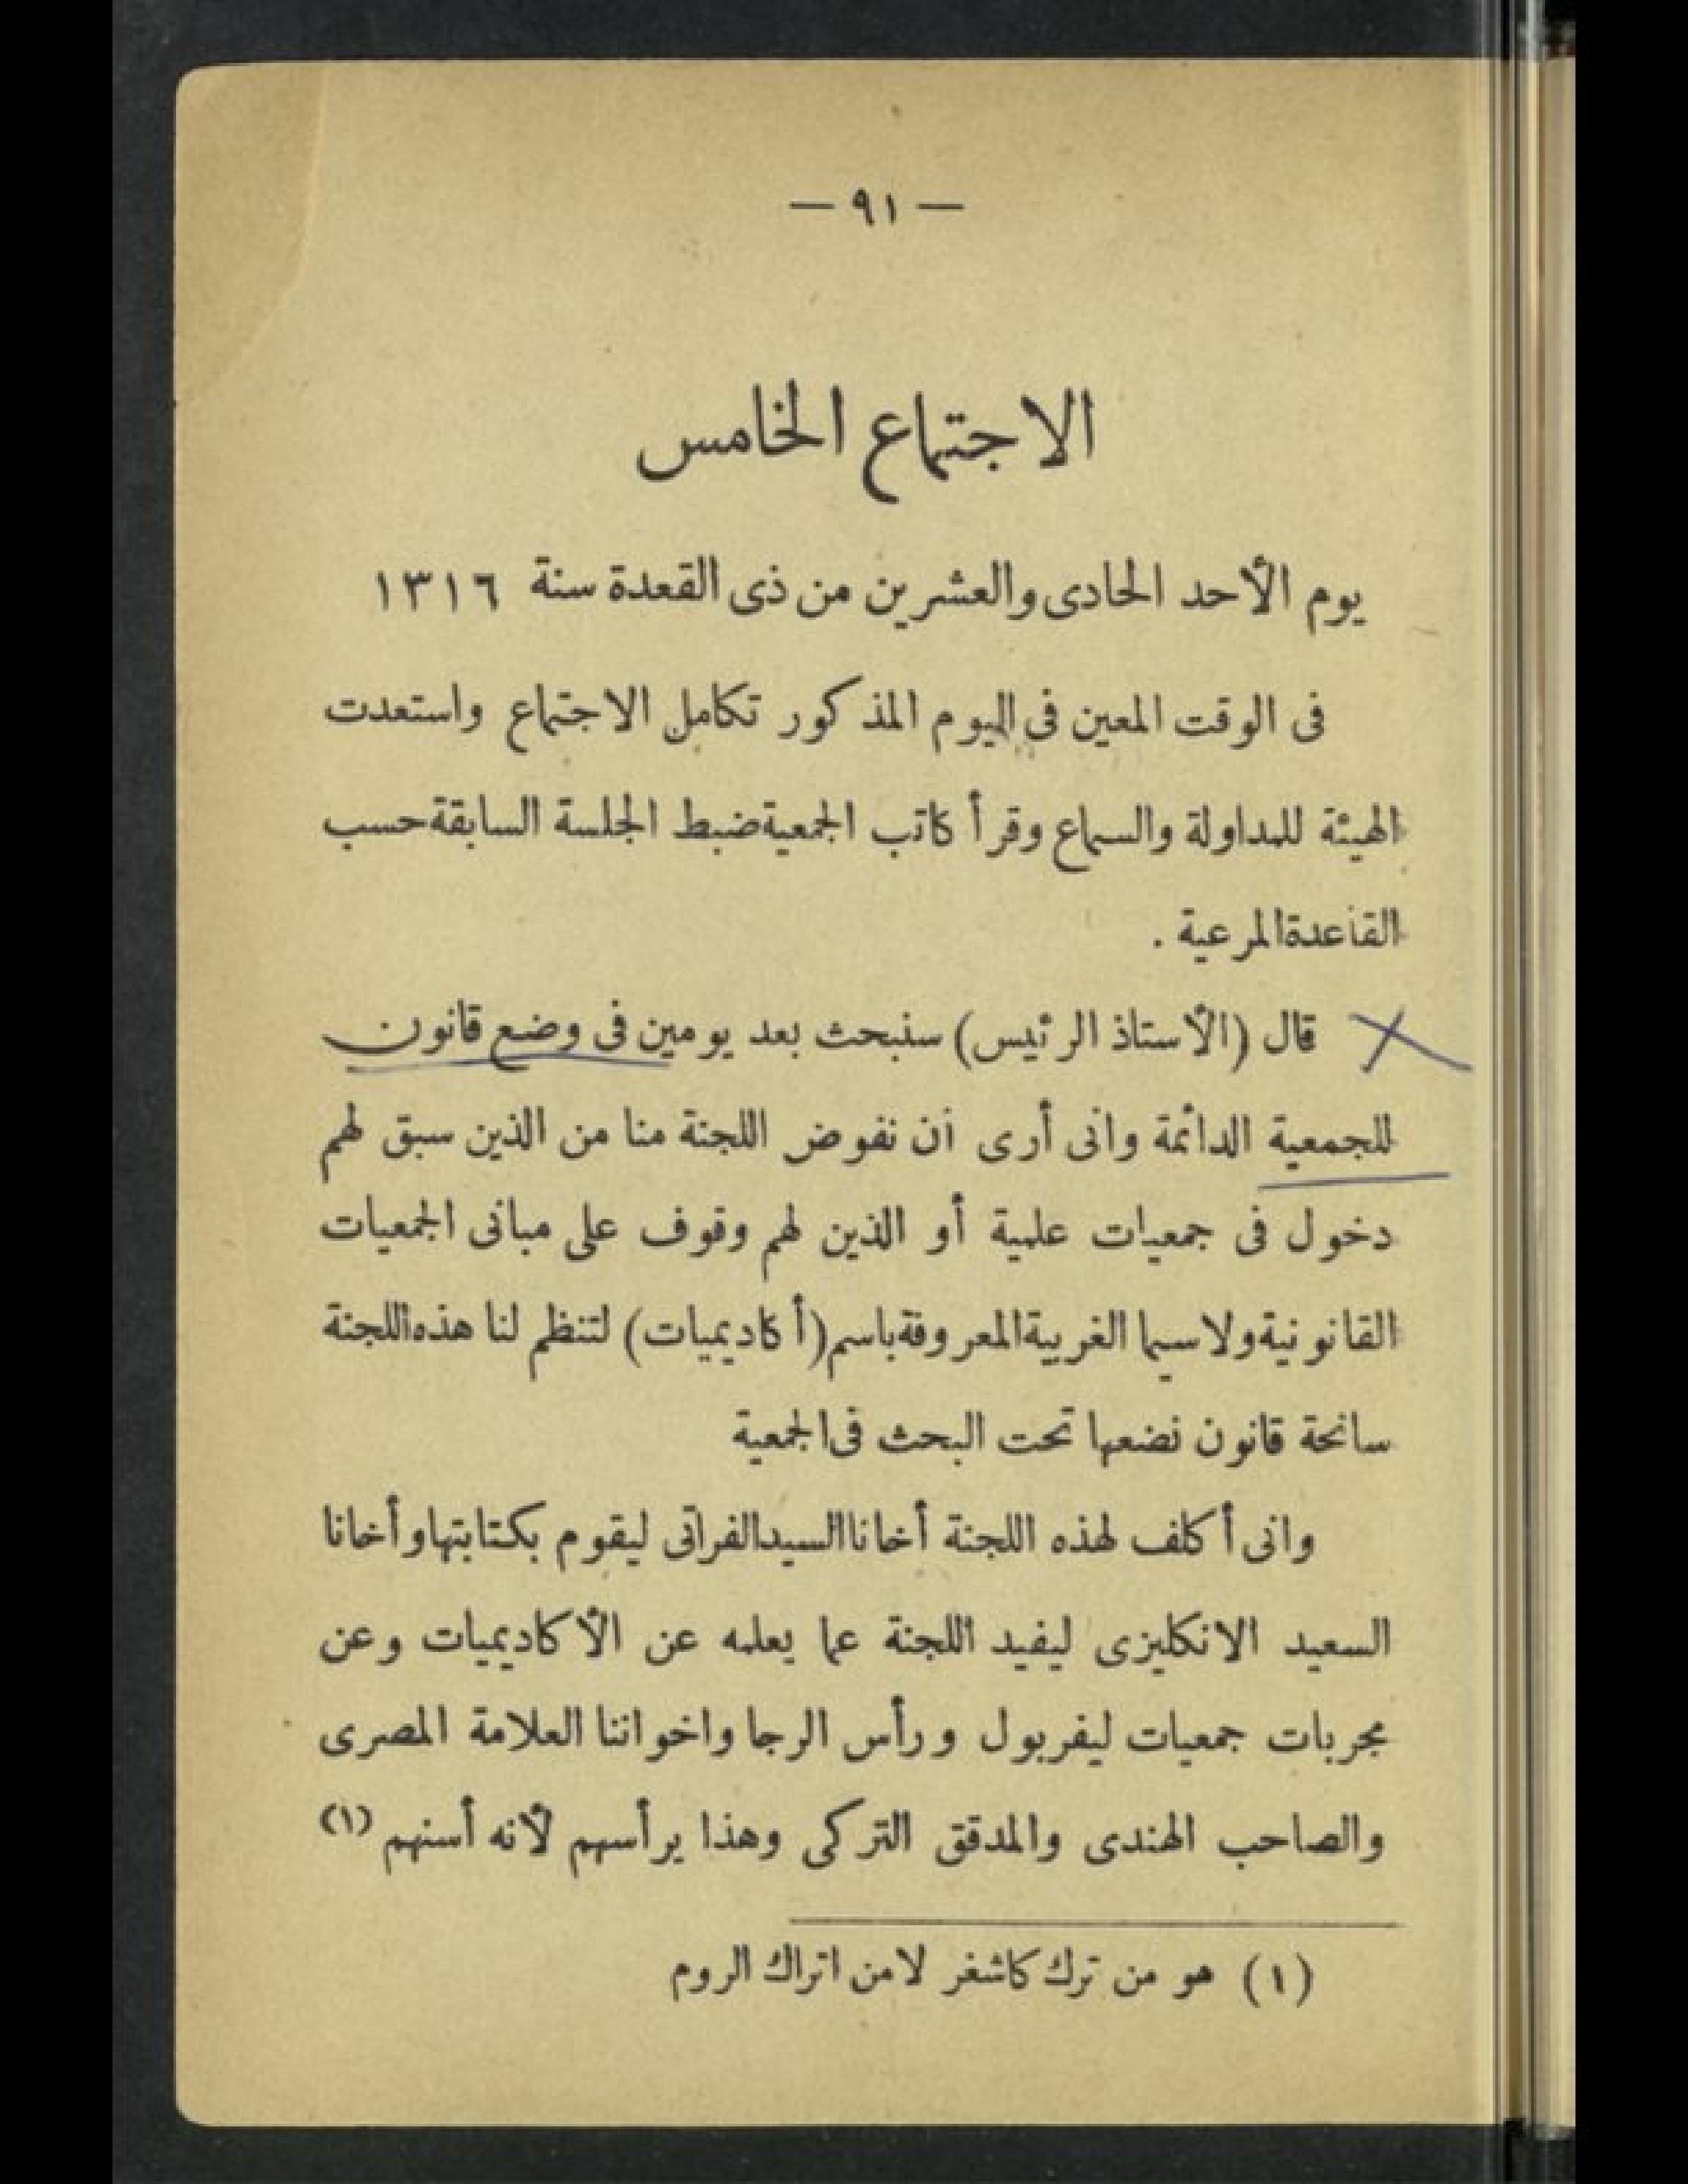 — ٩١ —
الاجتماع الخامس
يوم الأحد الحادى والعشرين من ذى القعدة سنة ١٣١٦
فى الوقت المعين فى اليوم المذكور تكامل الاجتماع واستعدت
الهيئة للمداولة والسماع وقرأ كاتب الجمعية ضبط الجلسة السابقة حسب
القاعدة المرعية .
قال (الأستاذ الرئيس) سنبحث بعد يومين فى وضع قانون
للجمعية الدائمة وانى أرى أن نفوض اللجنة منا من الذين سبق لهم
دخول فى جمعيات علمية أو الذين لهم وقوف على مبانى الجمعيات
القانونية ولاسيما الغربية المعروفة باسم (أكاديميات) لتنظم لنا هذه اللجنة
سانحة قانون نضعها تحت البحث فى الجمعية
وانى أكلف لهذه اللجنة أخانا السيد الفراتى ليقوم بكتابتها وأخانا
السعيد الانكليزى ليفيد اللجنة عما يعلمه عن الأكاديميات وعن
مجربات جمعيات ليفربول ورأس الرجا واخواننا العلامة المصرى
والصاحب الهندى والمدقق التركى وهذا يرأسهم لأنه أسنهم (١)
(١) هو من ترك كاشغر لا من اتراك الروم